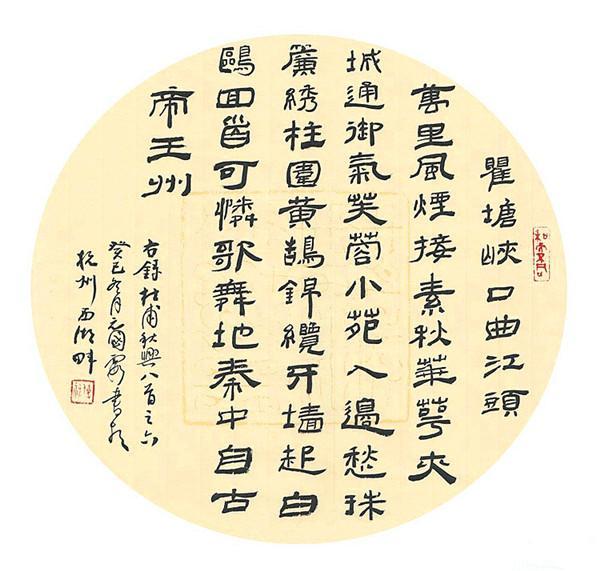 瞿塘峽口曲江頭
萬里風煙接素秋華萼夾
城通御氣芙蓉小苑入邊愁珠
簾綉柱圍黃鵠錦纜牙墻起白
鷗囬首可憐歌舞地秦中自古
帝王州
右錄杜甫秋興八首之六
癸巳冬月書於
杭州西湖畔